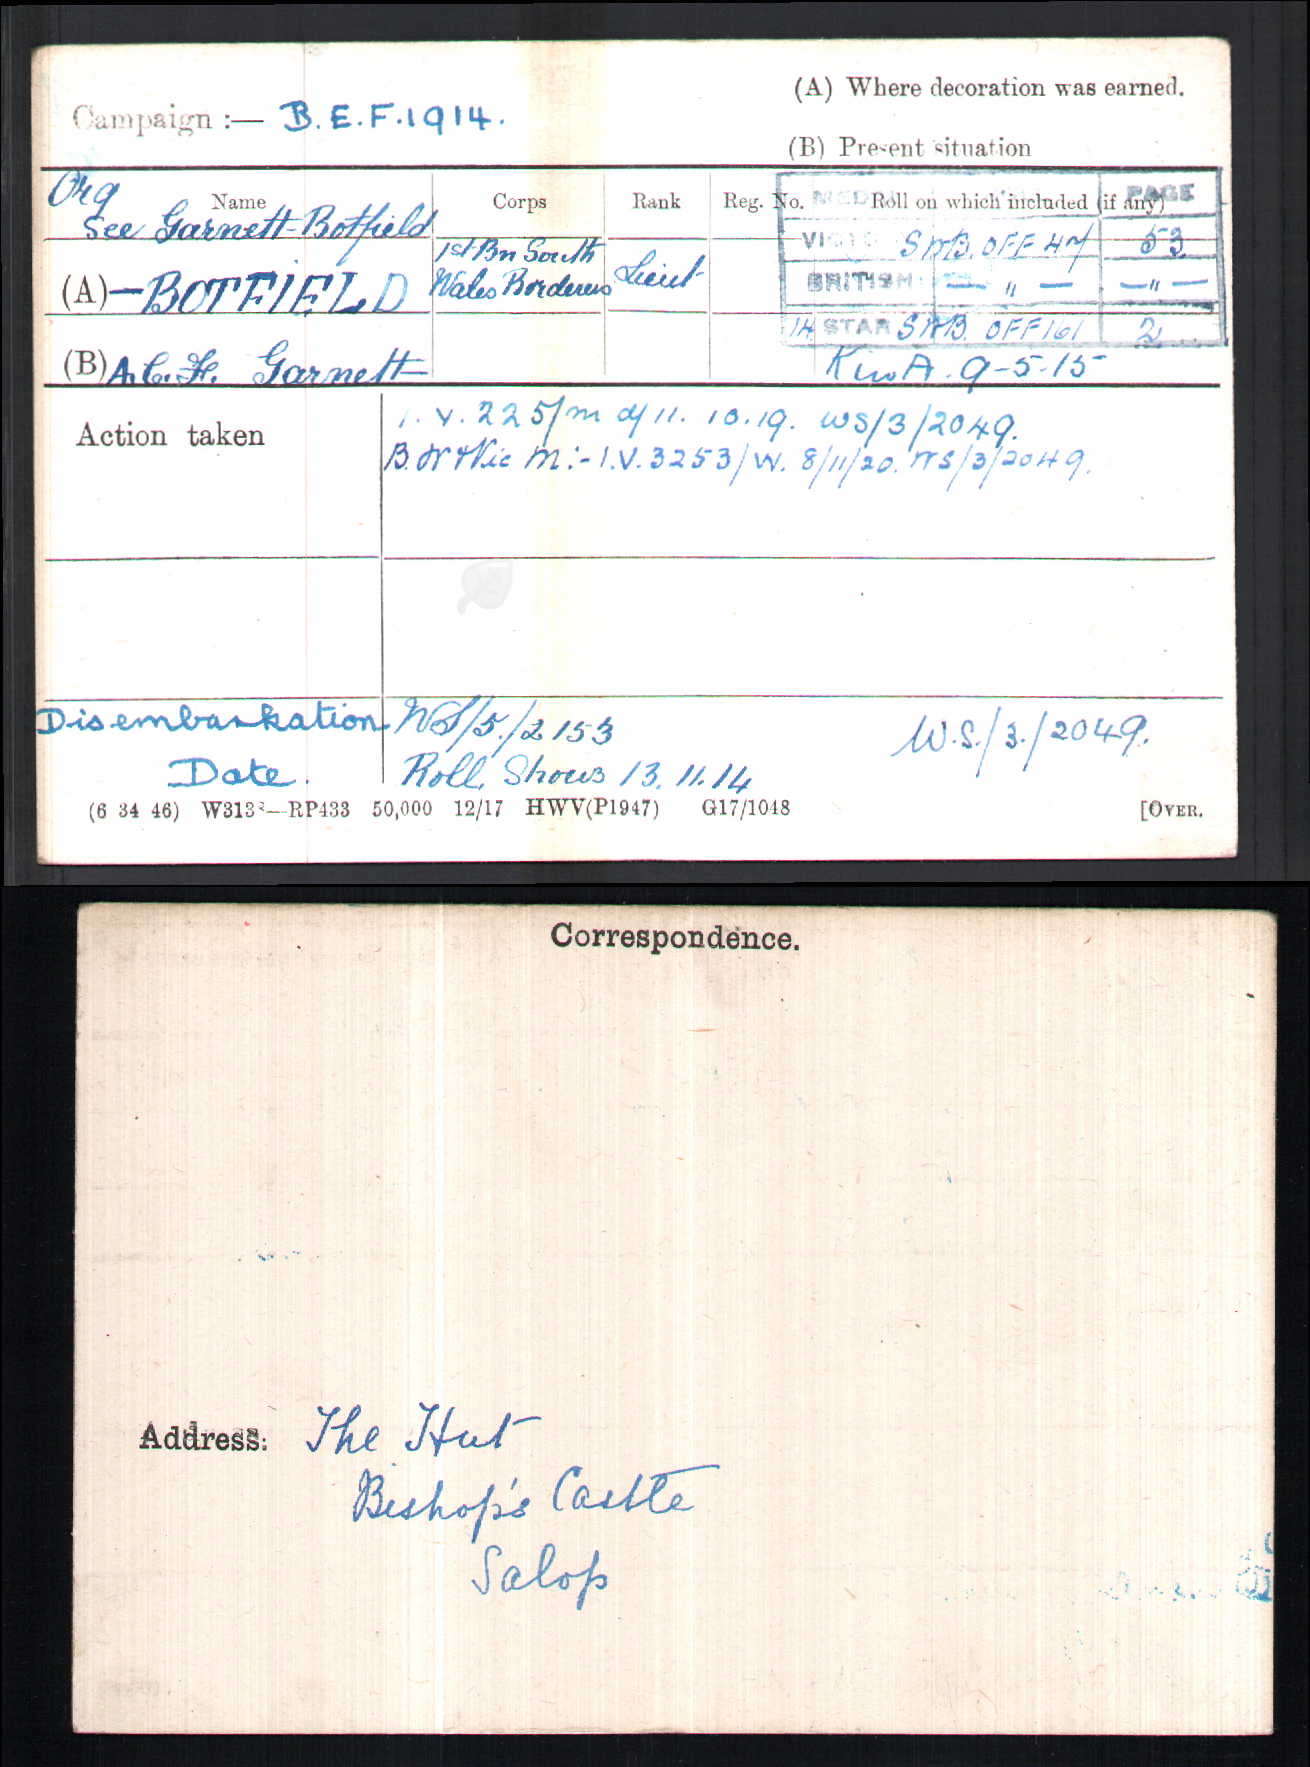 (A) Where decoration was earned.
Campaign :— B.E.F. 1914.
(B) Present situation
Org
Name Corps Rank Reg. No. Roll on which included (if any) PAGE
See Garnett-Botfield
1st Bn South
(A) — BOTFIELD Wales Borderers Lieut
S.W.B. OFF 47 53
BRITISH — " — — " —
14 STAR S.W.B. OFF 161 2
(B) A.C.F. Garnett
K in A. 9-5-15
Action taken
I.V. 225/M d/11.10.19. WS/3/2049.
B.W & Vic M:- I.V. 3253/W. 8/11/20. WS/3/2049.
Disembarkation WS/5./2153 W.S./3./2049.
Date. Roll Shows 13.11.14
(6 34 46) —RP433 50,000 12/17 HWV(P1947) G17/1048 [OVER.
Correspondence.
Address: The Hut
Bishop's Castle
Salop